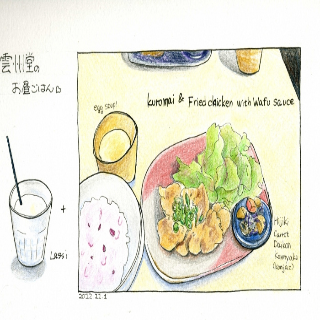 雲州堂の
お昼ごはん
egg soup!
kuromai & Fried chicken with Wafu sauce
+
Lassi
Hijiki
Carrot
Daicon
Konnyaku
2022.11.1